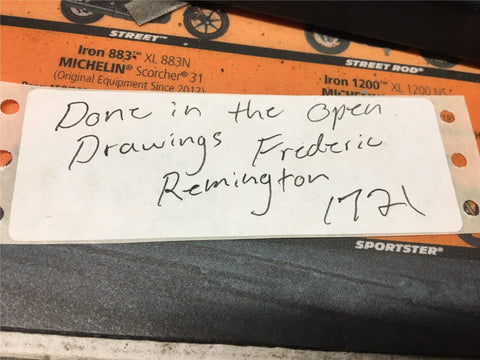 STREET™
STREET ROD®
Iron 883™ XL 883N
MICHELIN® Scorcher® 31
(Original Equipment Since 2012)
Iron 1200™ XL 1200 NS
Done in the open
Drawings Frederic
Remington
1721
SPORTSTER®